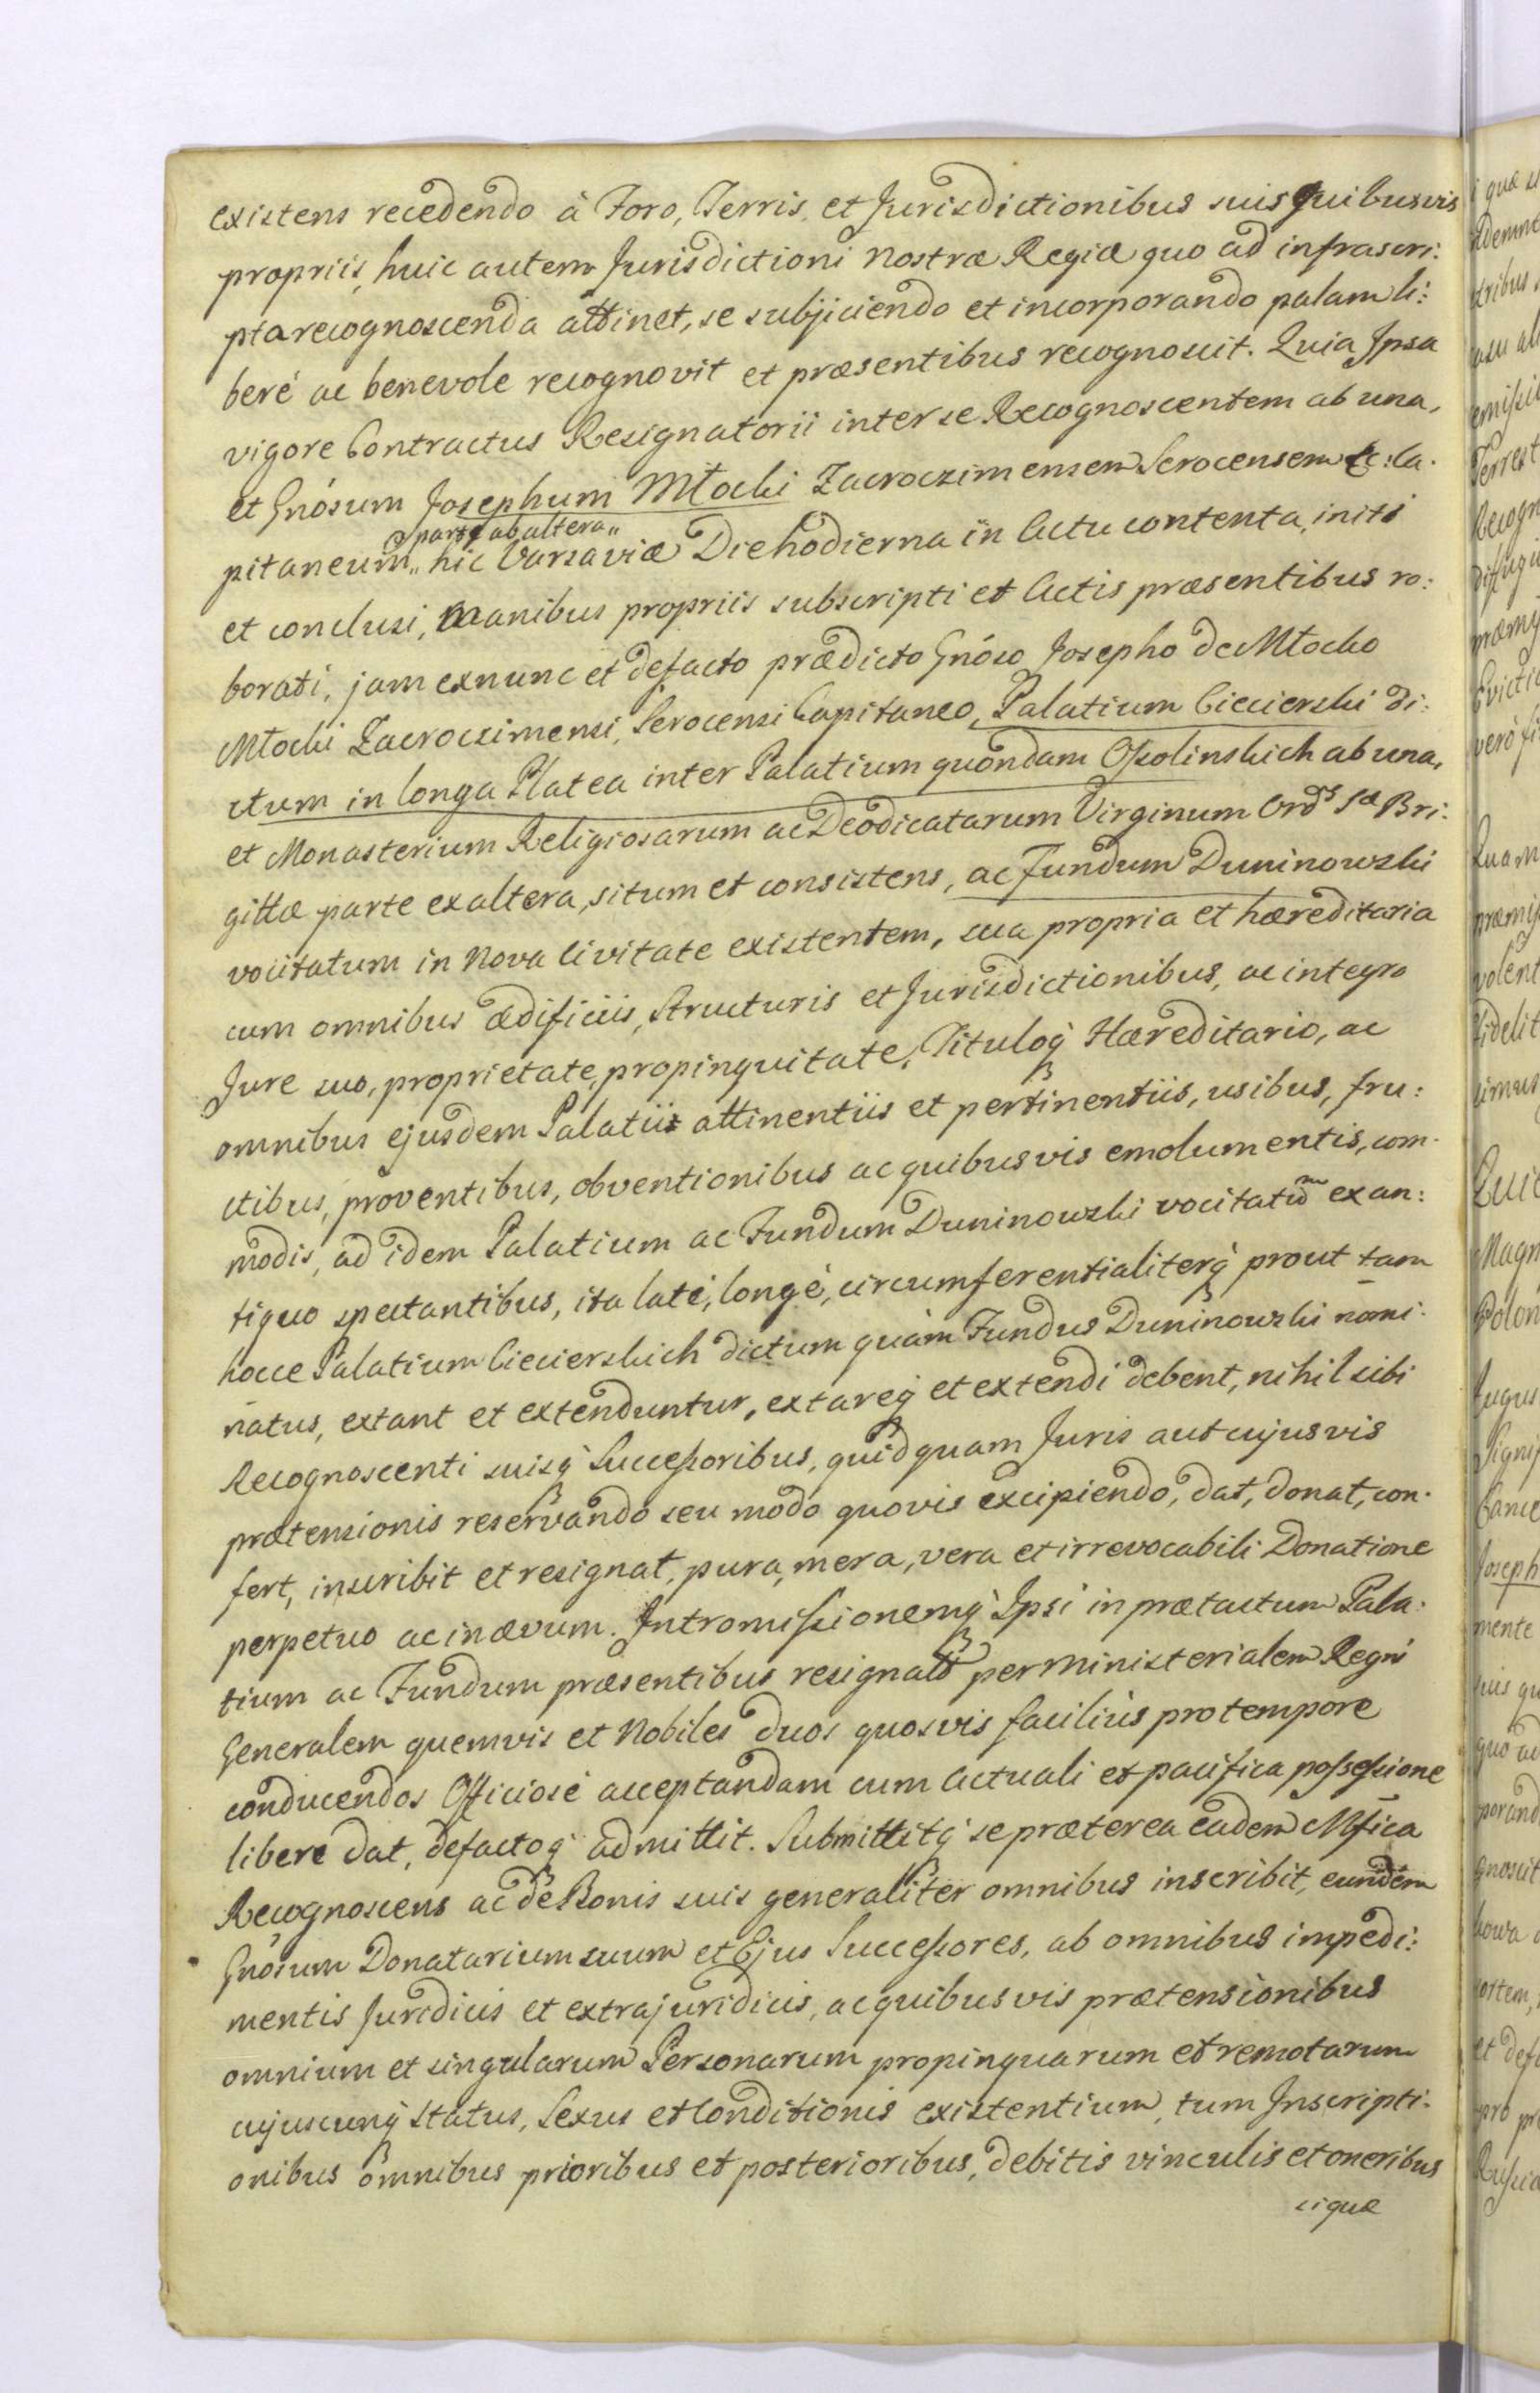 existens recedendo à Foro, Terris, et Jurisdictionibus suis quibusvis
propriis, huic autem Jurisdictioni Nostræ Regiæ quo ad infrascri:
pta recognoscenda attinet, se subjiciendo et incorporando palam li:
berè ac benevole recognovit et præsentibus recognoscit. Quia Ipsa
vigore Contractus Resignatorii inter se Recognoscentem ab una,
et Gnôsum Josephum Młocki Zacroczimensem Serocensem &c: Ca.
parte ab altera„
pitaneum„ hic Varsaviæ Die hodierna in Actu contenta, initi
et conclusi, Manibus propriis subscripti et Actis præsentibus ro:
borati, jam exnunc et defacto prædicto Gnóso Josepho de Młocko
Młocki Zacroczimensi, Serocensi Capitaneo, Palatium Ciecierski di:
ctum in longa Platea inter Palatium quondam Ossolinskich ab una,
et Monasterium Religiosarum ac Deo dicatarum Virginum Ordˢ Sᵃᵉ Bri:
gittæ parte ex altera, situm et consistens, ac Fundum Duninowski
vocitatum in Nova Civitate existentem, sua propria et hæreditaria
cum omnibus ædificiis, Structuris et Jurisdictionibus, ac integro
Jure suo, proprietate, propinquitate, Tituloq̀ Hæreditario, ac
omnibus ejusdem Palatii attinentiis et pertinentiis, usibus, fru:
ctibus, proventibus, obventionibus ac quibusvis emolumentis, com.
modis, ad idem Palatium ac Fundum Duninowski vocitatũᵐ ex an:
tiquo spectantibus, ita latè, longè, circumferentialiterq̀ prout tam
hocce Palatium Ciecierskich dictum quàm Fundus Duninowski nomi.
natus, extant et extenduntur, extareq̀ et extendi debent, nihil sibi
Recognoscenti suisq̀ Successoribus, quidquam Juris aut cujusvis
prætensionis reservando seu modo quovis excipiendo, dat, donat, con.
fert, inscribit et resignat, pura, mera, vera et irrevocabili Donatione
perpetuo ac in ævum. Intromissionemq̀ Ipsi in prætactum Pala.
tium ac Fundum præsentibus resignatũ per Ministerialem Regni
Generalem quemvis et Nobiles duos quosvis faciliùs pro tempore
conducendos Officiosè acceptandam cum Actuali et pacifica possessione
libere dat, defactoq̀ admittit. Submittitq̀ se præterea eadem Mfica
Recognoscens ac de Bonis suis generaliter omnibus inscribit, eundem
Gnósum Donatarium suum et Ejus Successores, ab omnibus impedi:
mentis Juridicis et extrajuridicis, ac quibusvis prætensionibus
omnium et singularum Personarum propinquarum et remotarum
cujuscunq̀ Status, Sexus et Conditionis existentium, tum Inscripti.
onibus omnibus prioribus et posterioribus, debitis vinculis et oneribus
siquæ